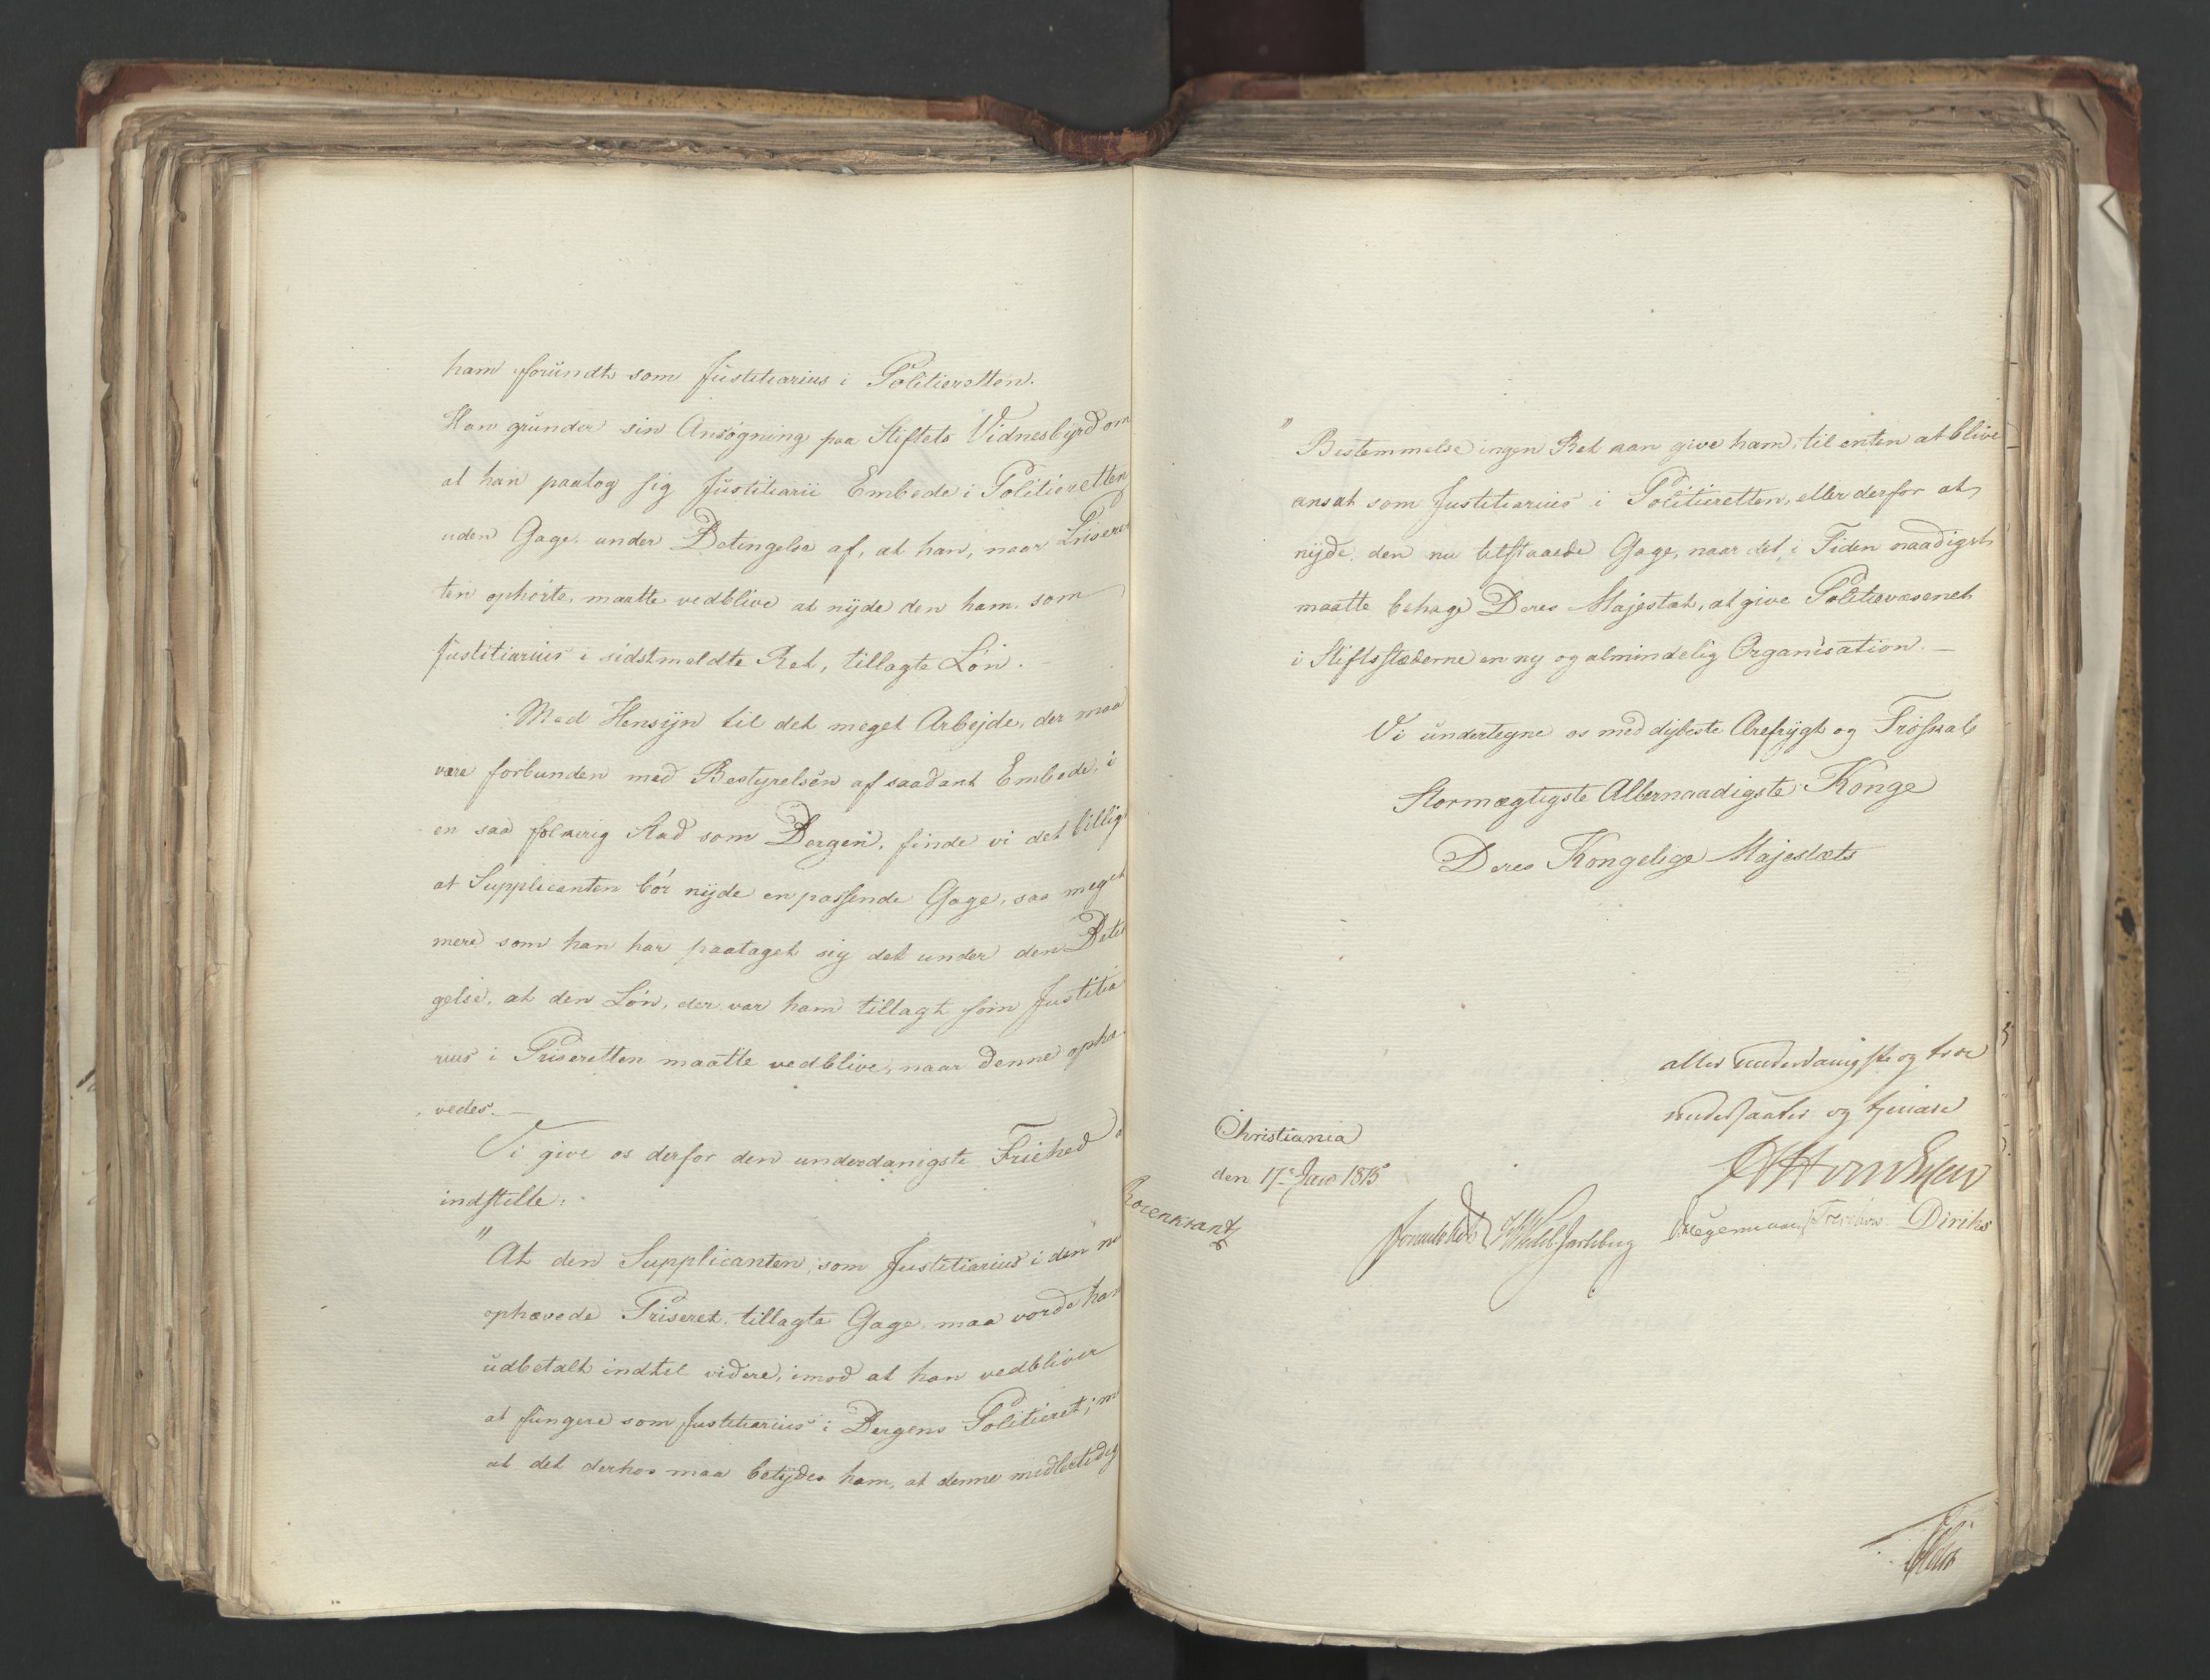 ham forundt som Justitiarius i Politieretten.
Han grunder sin Ansøgning paa Stiftets Vidnesbyrd om
at han paatog sig Justitiarii Embede i Politieretten
uden Gage, under Betingelse af, at han, naar Priseret
ten ophørte, maatte vedblive at nyde den ham, som
Justitiarius i sidstmeldte Ret, tillagte Løn. —
Med Hensyn til det meget Arbejde, der maa
være forbunden med Bestyrelsen af saadant Embede, i
en saa folkerig Stad som Bergen, finde vi det billigt
at Supplicanten bør nyde en passende Gage, saa meget
mere som han har paataget sig det under den Betin
gelse, at den Løn, der var ham tillagt som Justitia
rius i Priseretten maatte vedblive, naar denne ophæ
vedes. —
Vi give os derfor den underdanigste Friehed a
indstille:
" At den Supplicanten, som Justitiarius i den nu
ophævede Priseret, tillagte Gage, maa vorde ham
udbetalt indtil videre, imod at han vedbliver
at fungere som Justitiarius i Bergens Politieret; m
at det derhos maa betydes ham, at denne midlertidig
" Bestemmelse ingen Ret kan give ham, til enten at blive
ansat som Justitiarius i Politieretten, eller derfor at
nyde den nu tilstaaede Gage, naar det i Tiden naadigst
maatte behage Deres Majestæt, at give Politievæsenet
i Stiftsstæderne en ny og almindelig Organisation. —
Vi undertegne os med dybeste Ærefrygt og Troskab
Stormægtigste Allernaadigste Konge
Deres Kongelige Majestæts
allerunderdanigste og troe
undersaatter og tjenere
Christiania
den 17de Jan 1815
Rosenkrantz
Sommerhielm
Wedel Jarlsberg
Hegermann
Treschow
Diriks